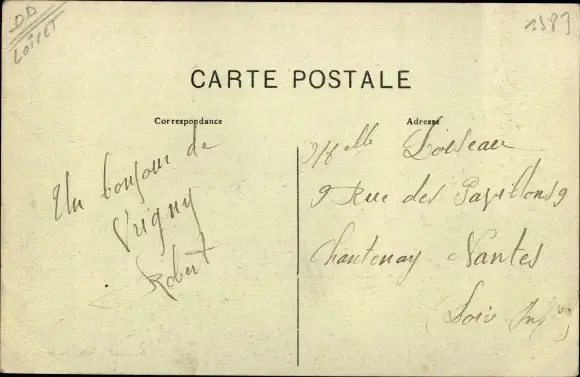 DD
LOIRET
1583
CARTE POSTALE
Correspondance
Adresse
Un bonjour de
Vrigny
Robert
Melle Loiseau
9 Rue des Papillons 9
Chantenay Nantes
(Loire Infre)